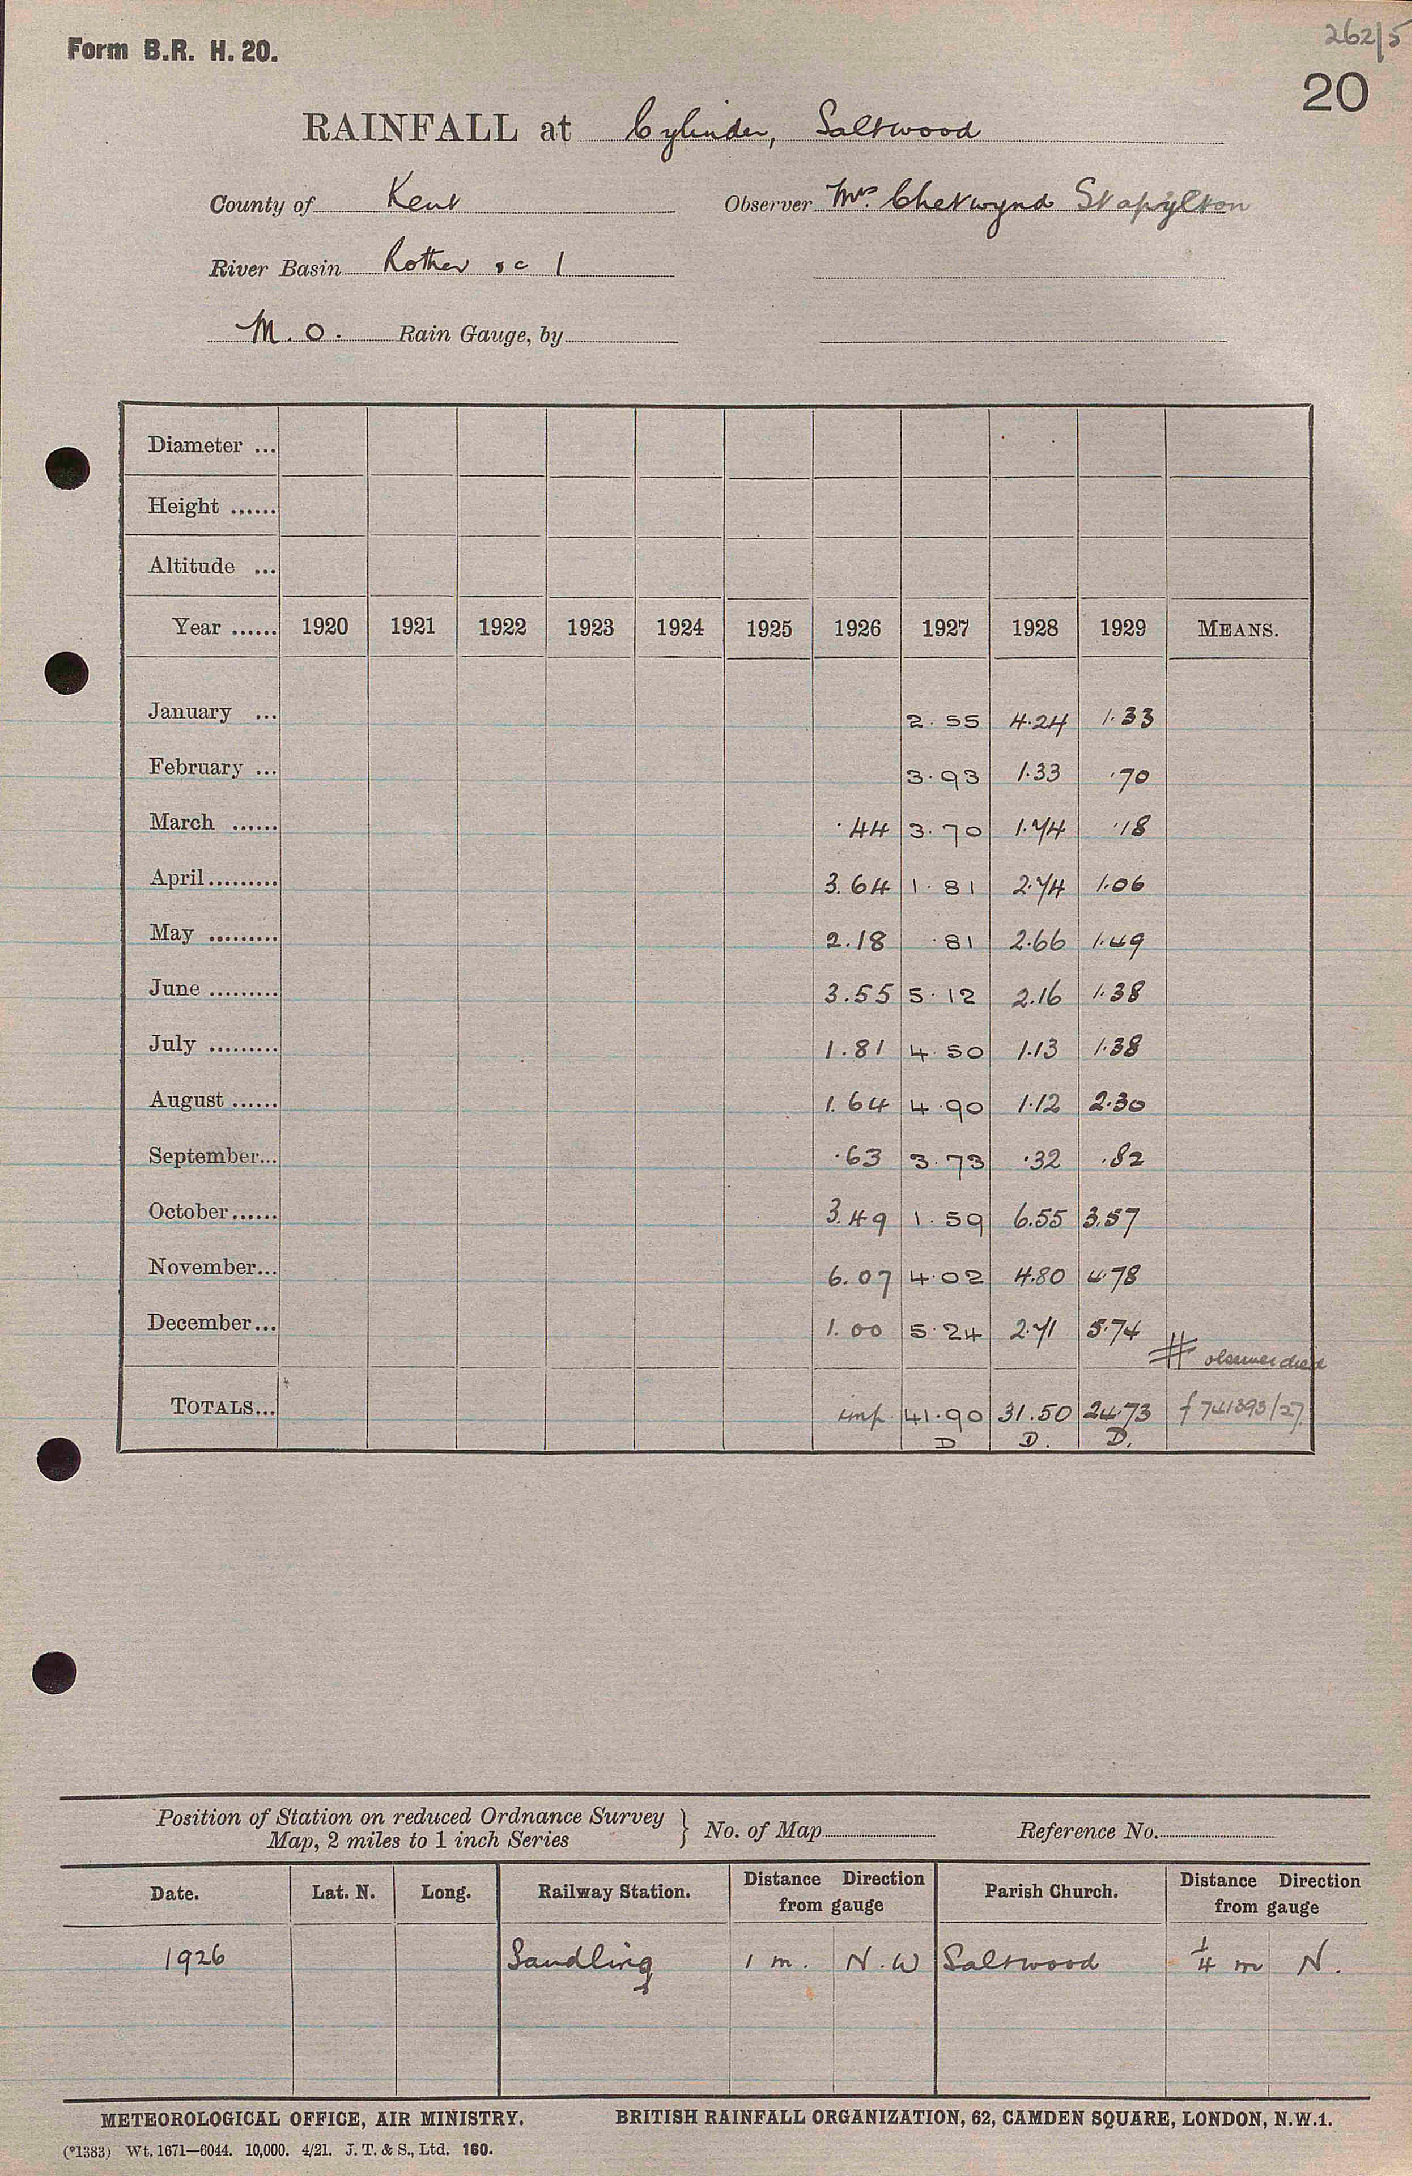 262/5
Form B.R. H. 20.
20
RAINFALL at Cylinder, Saltwood
County of Kent Observer Mrs. Chetwynd Stapylton
River Basin Rother &c 1
M.O. Rain Gauge, by
Diameter ...
Height ......
Altitude ...
Year ...... 1920 1921 1922 1923 1924 1925 1926 1927 1928 1929 MEANS.
January ... 2.55 4.24 1.33
February ... 3.93 1.33 .70
March ...... .44 3.70 1.74 .18
April ......... 3.64 1.81 2.74 1.06
May ......... 2.18 .81 2.66 1.49
June ......... 3.55 5.12 2.16 1.38
July ......... 1.81 4.50 1.13 1.38
August ...... 1.64 4.90 1.12 2.30
September... .63 3.73 .32 .82
October...... 3.49 1.59 6.55 3.57
November... 6.07 4.02 4.80 4.78
December... 1.00 5.24 2.71 5.74
# observer died
TOTALS... imp. 41.90 31.50 24.73 f 741393/27
D D. D.
Position of Station on reduced Ordnance Survey
Map, 2 miles to 1 inch Series } No. of Map Reference No.
Date. Lat. N. Long. Railway Station. Distance Direction from gauge Parish Church. Distance Direction from gauge
1926 Sandling 1 m. N.W Saltwood 1/4 m N.
METEOROLOGICAL OFFICE, AIR MINISTRY. BRITISH RAINFALL ORGANIZATION, 62, CAMDEN SQUARE, LONDON, N.W.1.
(*1383) Wt. 1671—6044. 10,000. 4/21. J. T. & S., Ltd. 160.